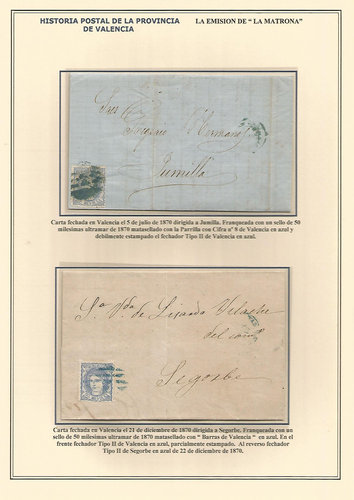 HISTORIA POSTAL DE LA PROVINCIA DE VALENCIA
LA EMISION DE “ LA MATRONA”
Sres
Gregorio y Hermano
Jumilla
Carta fechada en Valencia el 5 de julio de 1870 dirigida a Jumilla. Franqueada con un sello de 50
milesimas ultramar de 1870 matasellado con la Parrilla con Cifra nº 8 de Valencia en azul y
debilmente estampado el fechador Tipo II de Valencia en azul.
Sª Vda de Lisardo
del com
Segorbe
Carta fechada en Valencia el 21 de diciembre de 1870 dirigida a Segorbe. Franqueada con un
sello de 50 milesimas ultramar de 1870 matasellado con “ Barras de Valencia ” en azul. En el
frente fechador Tipo II de Valencia en azul, parcialmente estampado. Al reverso fechador
Tipo II de Segorbe en azul de 22 de diciembre de 1870.